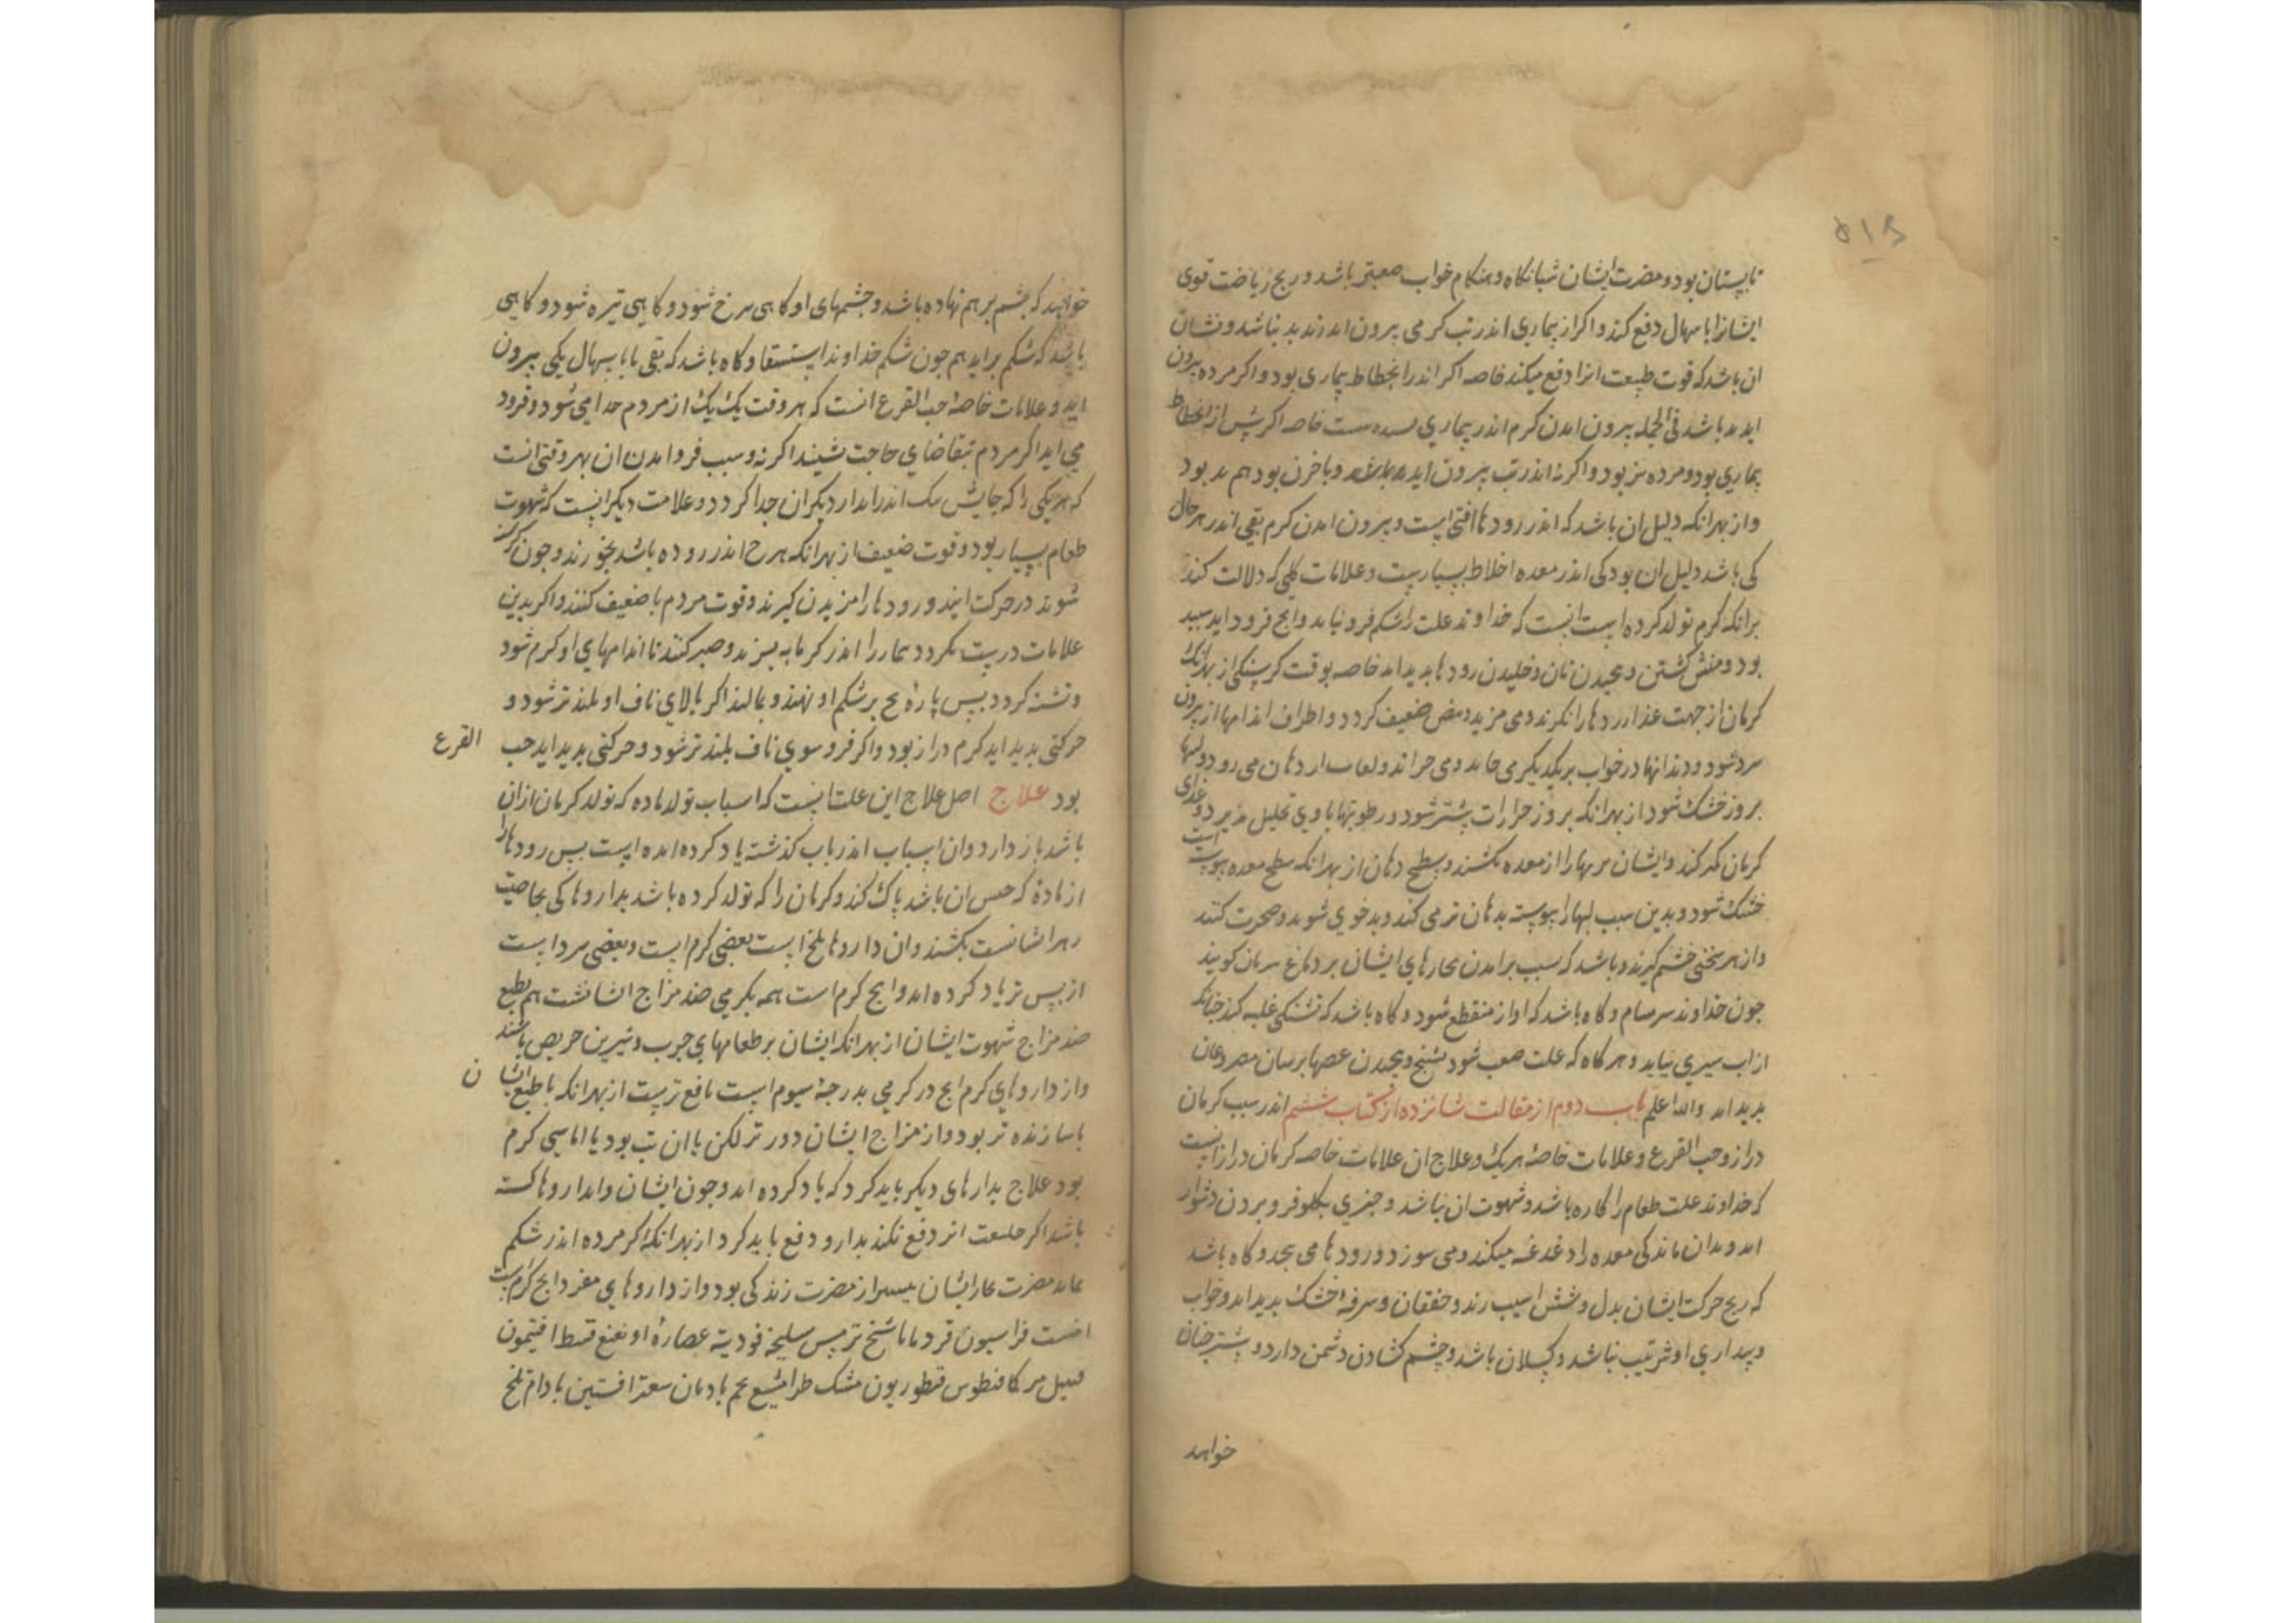 ۵۱۶
تابستان بود و مضرت ایشان شبانکاه و هنکام خواب صعبتر باشد و ریح ریاضت قوی
ایشانرا باسهال دفع کند و اکر از بیماری اندر تب کرمی بیرون اید زنده بد نباشد و نشان
ان باشد که قوت طبیعت انرا دفع میکند خاصه اکر اندر انحطاط بیماری بود و اکر مرده بیرون
اید بد باشد فی الجمله بیرون امدن کرم اندر بیماری خاصه اکر پیش از انحطاط
بیماری بود و مرده نیز بود و اکر نه اندر تب بیرون اید و با خون بود هم بد بود
و از بهر انکه دلیل ان باشد که اندر رودها افتی است و بیرون امدن کرم بقی اندر هر حال
کی باشد دلیل ان بود کی اندر معده اخلاط بسیارست و علامات کلی که دلالت کند
برانکه کرم تولد کرده است انست که خداوند علت را شکم فرو نیاید وانچ فرود اید سپید
بود و منش کشتن و خلیدن رودها بدید اید خاصه بوقت کرسنکی از بهر انک
کرمان از جهت غذا رودها را نکیرند و می مزند و نبض ضعیف کردد و اطراف اندامها از بیرون
سرد شود و دندانها در خواب بر یکدیکر می خاید و لعاب از دهان می رود و لبها
بروز خشک شود از بهر انکه بروز حرارت بیشتر شود و رطوبتها با وی تحلیل پذیرد و غذای
کرمان کمتر کند و ایشان تریها را از معده بکشند و سطح دهان از بهر انکه سطح معده پیوسته است
خشک شود و بدین سبب لبها را پیوسته بدهان تر می کند و بدخوی شوند و ضجرت کنند
و از هر سخنی خشم کیرند و باشد که سبب برامدن بخارهای ایشان بر دماغ هذیان کویند
جون خداوند سرسام و کاه باشد که اواز منقطع شود و کاه باشد که تشنکی غلبه کند جنانکه
از اب سیری نیابد و هر کاه که علت صعب شود تشنج و بیجیدن عصبها برسان مصروعان
بدید اید والله اعلم باب دوم از مقالت شانزده از کتاب ششم اندر سبب کرمان
دراز و حب القرع و علامات خاصهٔ هر یک و علاج ان علامات خاصه کرمان دراز انست
که خداوند علت طعام را کاره باشد و شهوت ان نباشد و جیزی بکلو فرو بردن دشوار
اید و بدان ماند کی معده را دغدغه میکند و می سوزد و رودها می بیجد و کاه باشد
که ریح حرکت ایشان بدل و شش اسیب رسد و خفقان و سرفهٔ خشک بدید اید و خواب
و بیداری او بترتیب نباشد و کسلان باشد و چشم کشادن دشمن دارد و بیشتر جنان
خواهد
خواهند که چشم بر هم نهاده باشد و چشمهای او کاهی سرخ شود و کاهی تیره شود و کاهی
باشد که شکم براید هم جون شکم خداوند استسقا و کاه باشد که بقی یا باسهال یکی بیرون
اید و علامات خاصهٔ حب القرع انست که هر وقت یک یک از مردم جدا می شود و فرود
می اید اکر مردم بتقاضای حاجت نشیند اکر نه و سبب فرو امدن ان بهر وقتی انست
که هر یکی را که جایش اندر از دیکران جدا کردد و علامت دیکر انست که شهوت
طعام بسیار بود و قوت ضعیف از بهر انکه هرج اندر روده باشد بخورند و جون کرسنه
شوند در حرکت ایند و رودها را مزیدن کیرند و قوت مردم را ضعیف کنند و اکر بدین
علامات درست نکردد بیمار را اندر کرمابه برند و صبر کنند تا اندامهای او کرم شود
و تشنه کردد پس پارهٔ یخ بر شکم او نهند و بمالند اکر بالای ناف او بلندتر شود و
حرکتی بدید اید کرم دراز بود و اکر فروسوی ناف بلندتر شود و حرکتی بدید اید حب القرع
بود علاج اصل علاج این علت انست که اسباب تولد ماده که تولد کرمان از ان
باشد باز دارد و ان اسباب اندر باب کذشته یاد کرده امده است پس رودها را
از مادهٔ که جنس ان باشد پاک کند و کرمان را که تولد کرده باشد بداروها کی بخاصیت
زهر ایشانست بکشند و ان داروها تلخ است بعضی کرم است و بعضی سرد است
از پس تر یاد کرده اید وانچ کرم است همه بکرمی ضد مزاج ایشانست هم بطبع
ضد مزاج شهوت ایشان از بهر انکه ایشان بر طعامهای جرب و شیرین حریص باشند
و از داروهای کرم انج در کرمی بدرجهٔ سیوم است نافع ترست از بهر انکه با طبع ایشان
ناسازنده تر بود و از مزاج ایشان دورتر لکن با ان تب بود یا اماسی کرم
بود علاج بدارهای دیکر باید کرد که یاد کرده اید و جون ایشان را بداروها کشته
باشد اکر طبیعت انرا دفع نکند بدارو دفع باید کرد از بهر انکه اکر مرده اندر شکم
بماند مضرت بخار ایشان بیشتر از مضرت زندکی بود و از داروهای مفرد انج کرم است
انست فراسیون قردمانا شیخ ترمس سلیخه فودنه عصارهٔ او نعنع قسط افتیمون
قنبیل مر کافیطوس قنطوریون مشک طرامشیع تخم بادیان سعتر افسنتین بادام تلخ